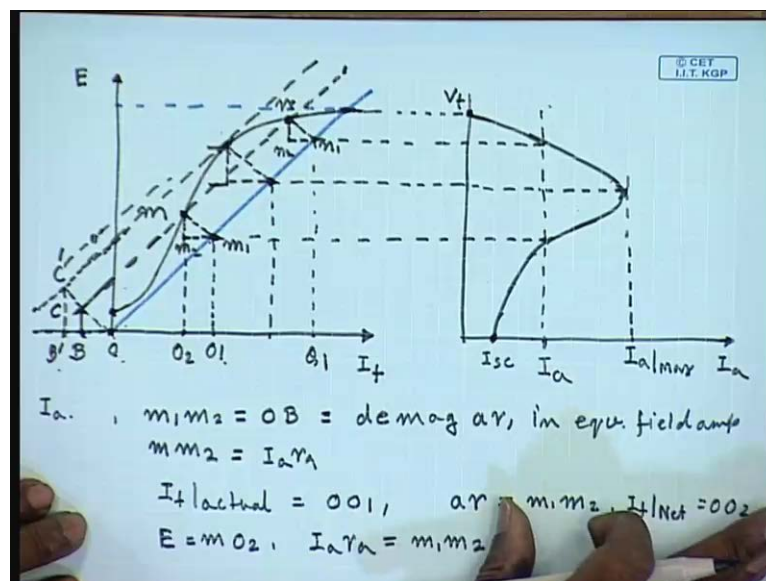 © CET
I.I.T. KGP
E
Vt
m
m2
m1
m
m2
m1
C'
C
B'
B
O
O2
O1
O1
If
Isc
Ia
Ia|max
Ia
Ia. , m1m2 = OB = demag ar, in equ. field amp
mm2 = Iara
If|actual = OO1, ar = m1m2, If|Net = OO2
E = mO2, Iara = m1m2